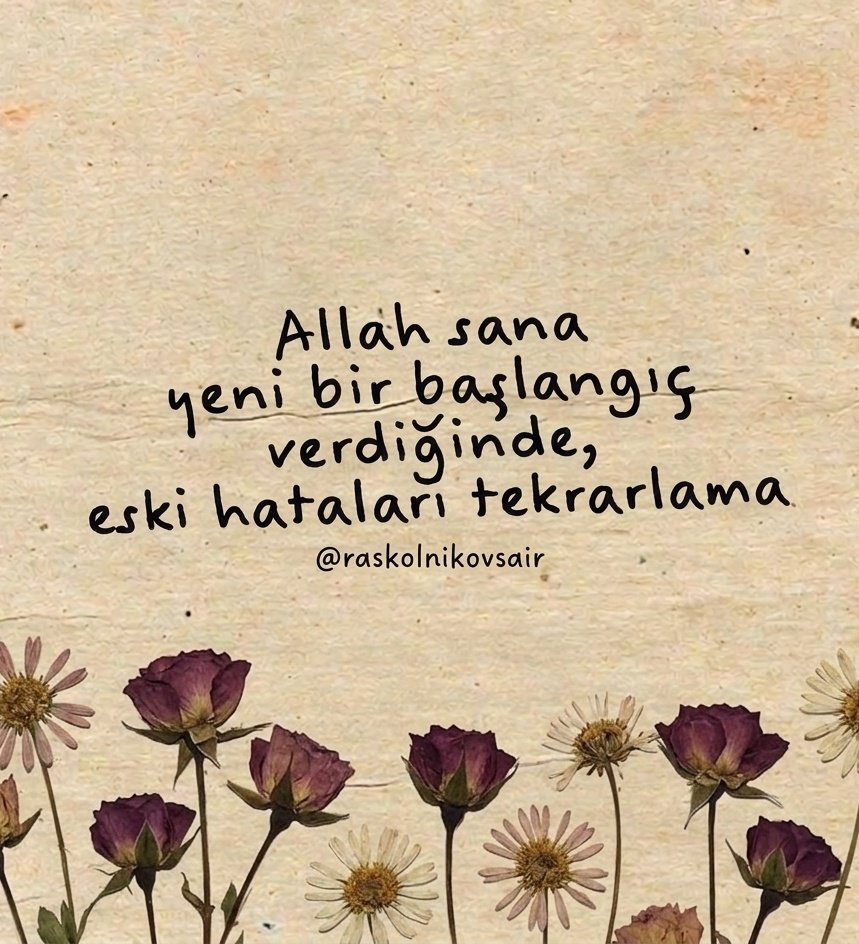 Allah sana
yeni bir başlangıç
verdiğinde,
eski hataları tekrarlama
@raskolnikovsair